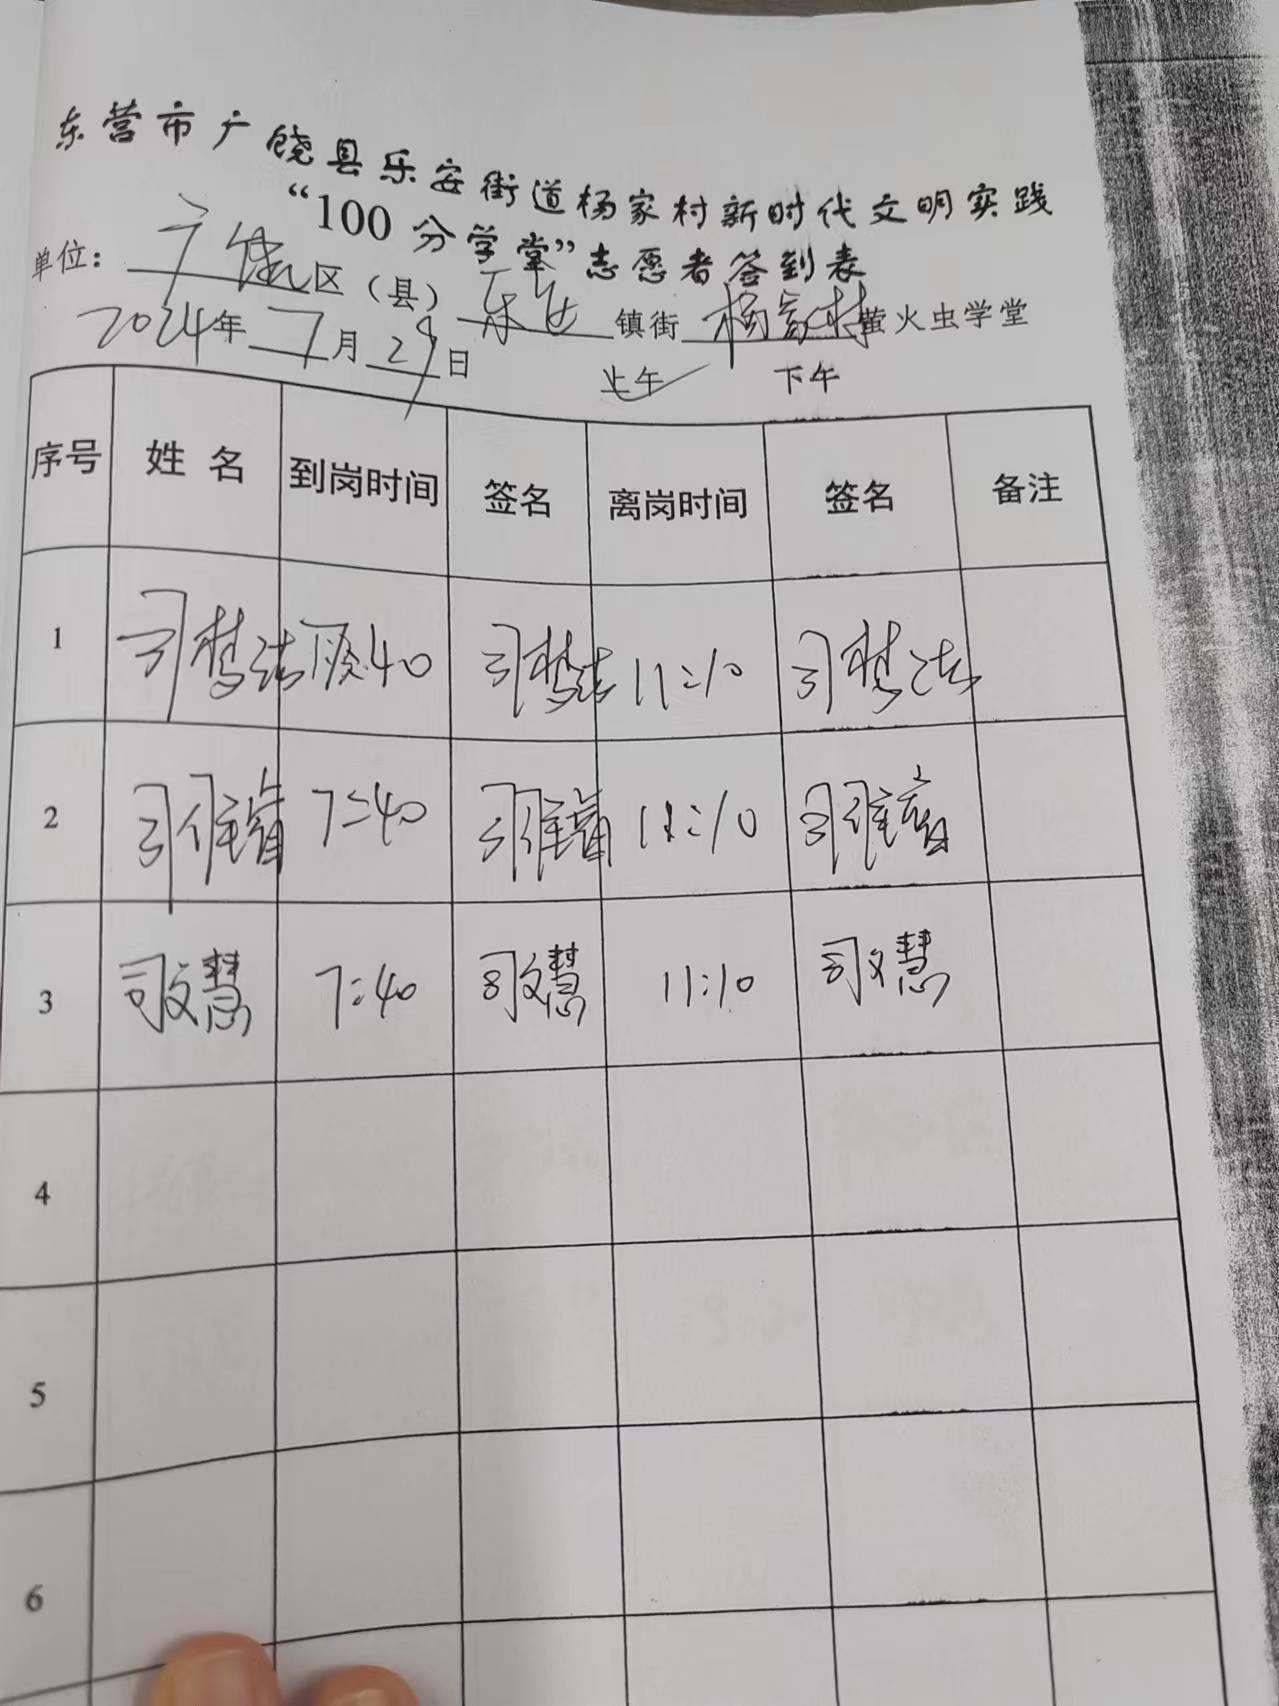 东营市广饶县乐安街道杨家村新时代文明实践
“100分学堂”志愿者签到表
单位：广饶区（县）乐安镇街杨家村萤火虫学堂
2024年7月29日 上午✓ 下午
序号 姓名 到岗时间 签名 离岗时间 签名 备注
1 司梦洁 40 司梦洁 11:10 司梦洁
2 司维睿 7:40 司维睿 11:10 司维睿
3 司文慧 7:40 司文慧 11:10 司文慧
4
5
6